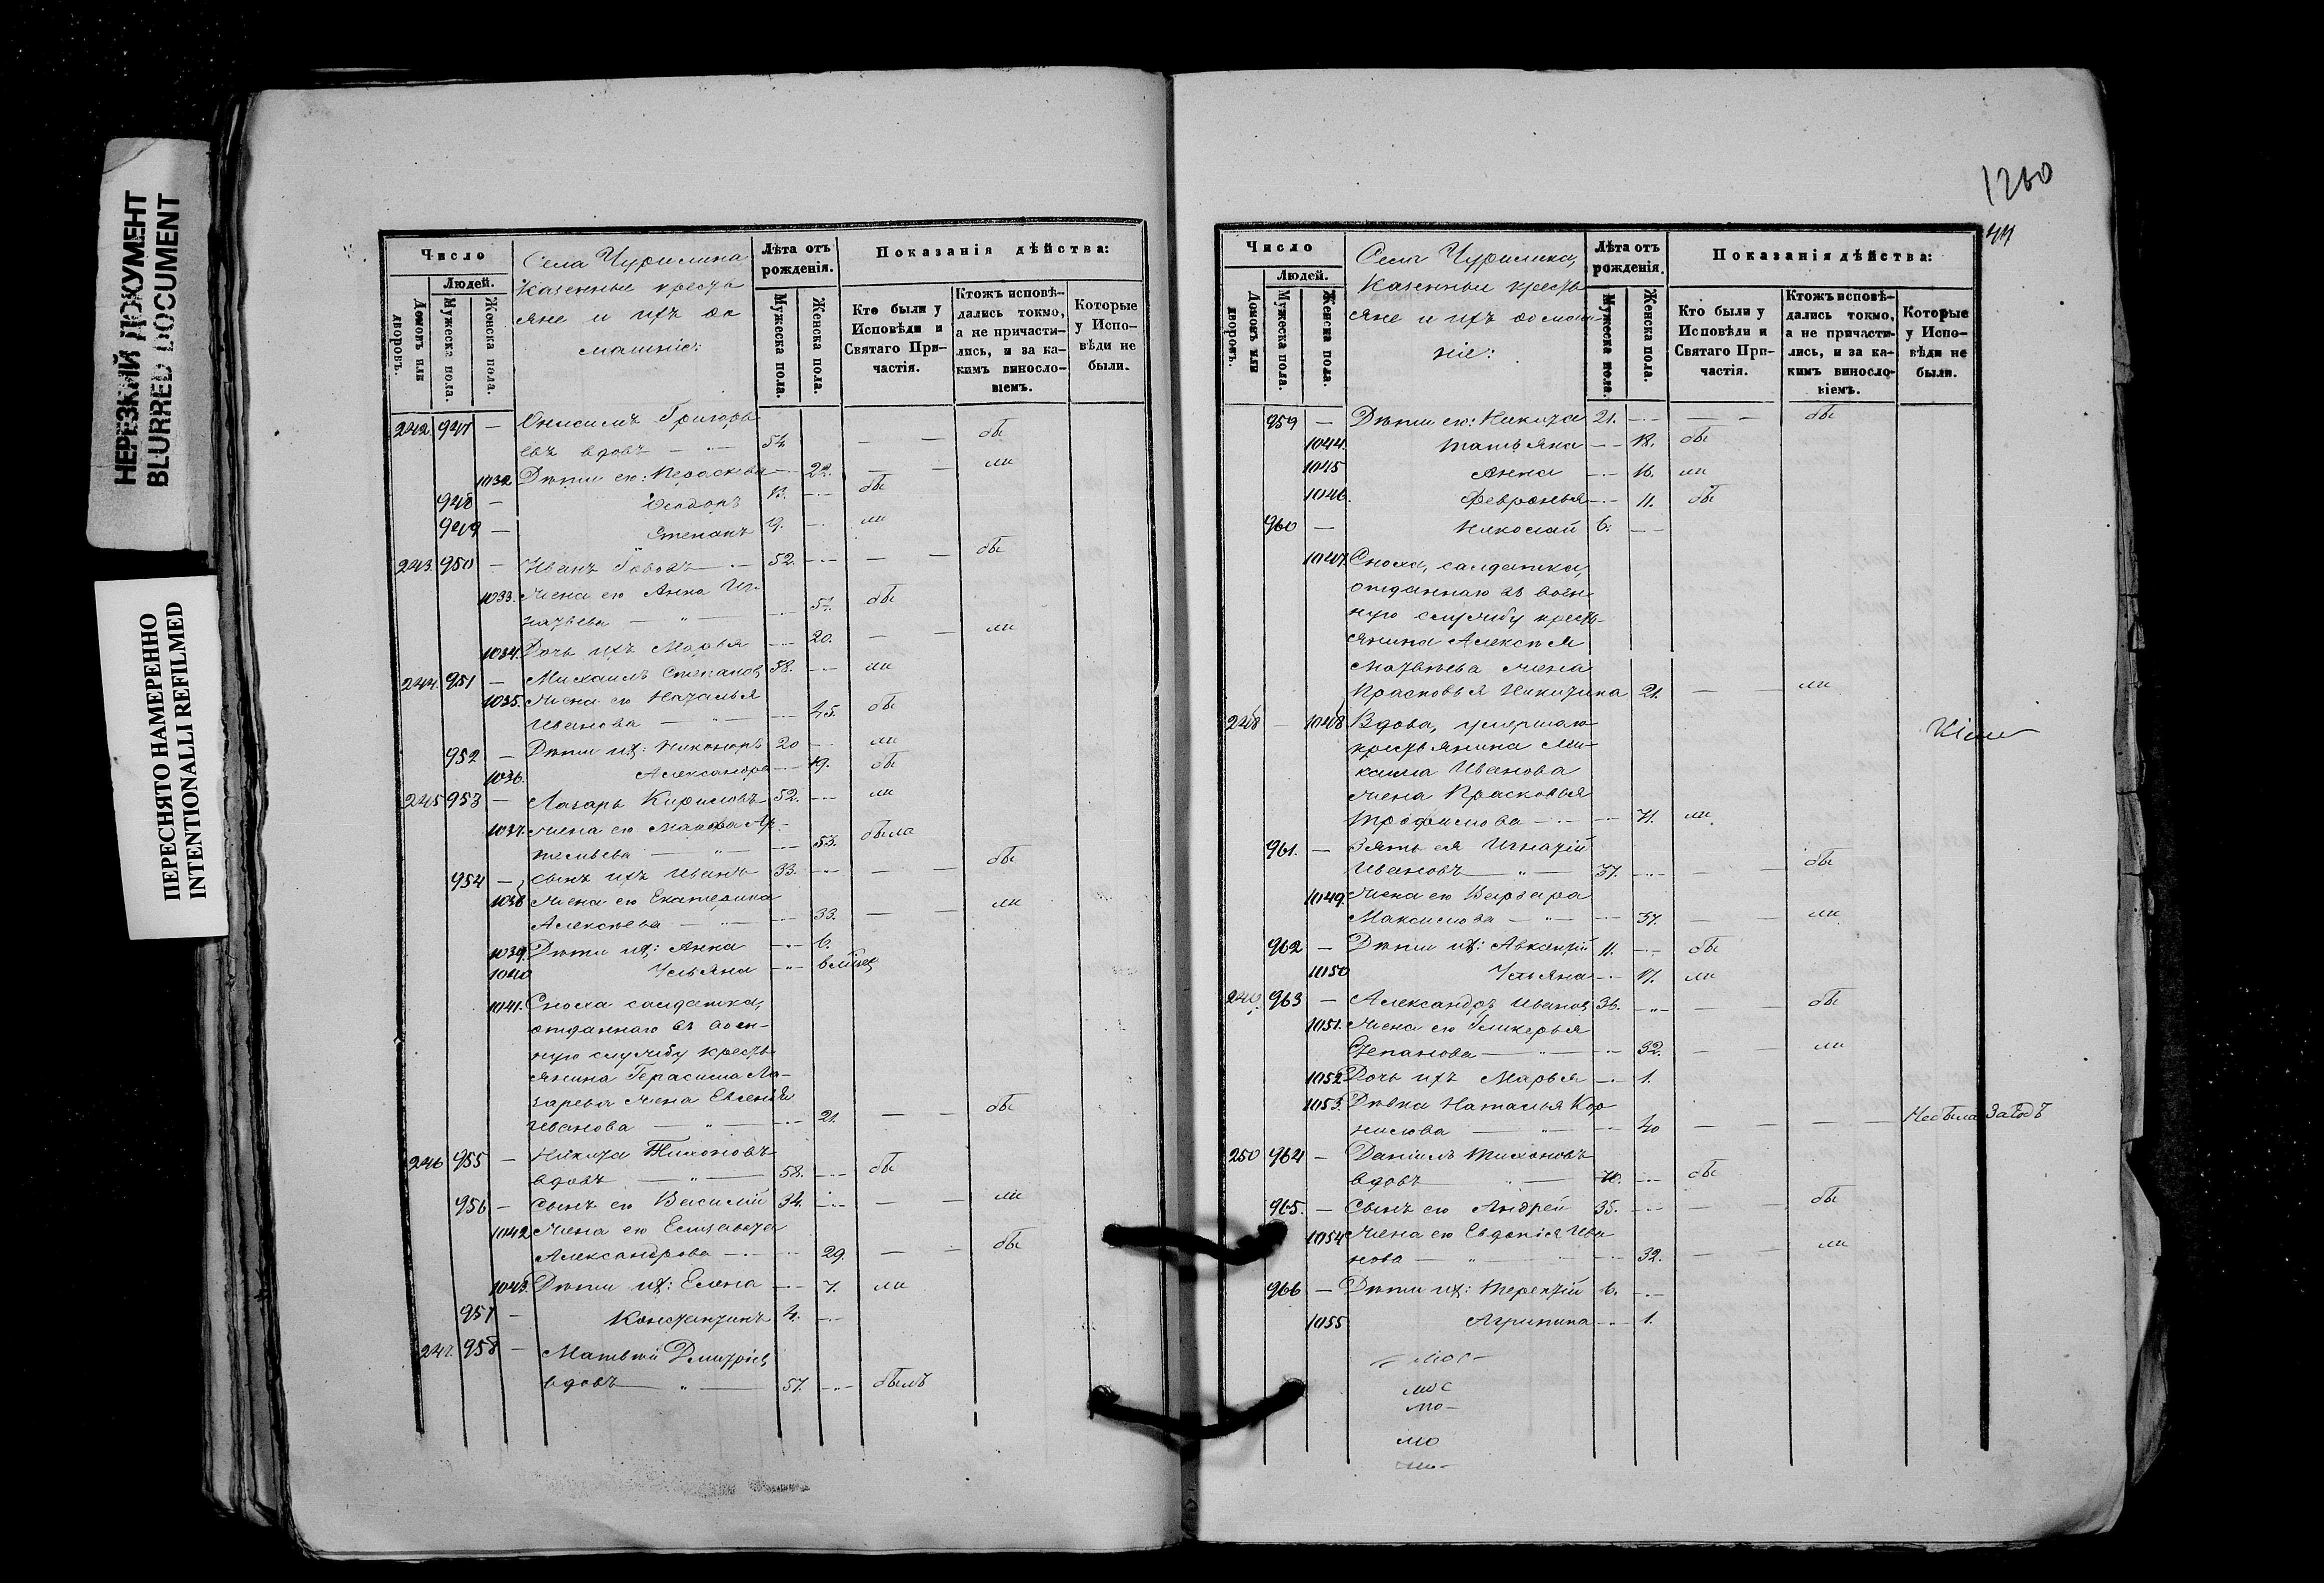 НЕРЕЗКИЙ ДОКУМЕНТ
BLURRED DOCUMENT
ПЕРЕСНЯТО НАМЕРЕННО
INTENTIONALLI REFILMED
Число
Людей.
Домовъ или дворовъ.
Мужеска пола.
Женска пола.
Села Чурилина
Казенные кресть
яне и ихъ до
машніе:
Лѣта отъ рожденія.
Мужеска пола.
Женска пола.
Показанія дѣйства:
Кто были у Исповѣди и Святаго Причастія.
Ктожъ исповѣ-
дались токмо,
а не причасти-
лись, и за ка-
кимъ винословіемъ.
Которые у Испо-
вѣди не были.
242. 947 — Онисимъ Григорь
евъ вдовъ — 54 — — бы
1032 Дѣти его: Параскева — 22. — — ли
948 — Ѳеодоръ 13. — бы
949 — Степанъ 9. — ли
243. 950 — Иванъ — 52. — — — бы
1033. Жена его Анна Иг-
натьева — 57. бы
1034. Дочь ихъ Марья — 20. — — ли
244. 951 — Михаилъ Степановъ 58. — ли
1035. Жена его Наталья
Иванова — 45. бы
952 — Дѣти ихъ: Никаноръ 20 — ли
1036. Александра — 19. бы
245 953 — Лазарь Кириловъ 52. — ли
1037. Жена его Марѳа Ар-
темьева — 53. была
954 — Сынъ ихъ Иванъ 33. — — — бы
1038 Жена его Екатерина
Алексѣева — 33. — — ли
1039. Дѣти ихъ: Анна — 6.
1040 Ульяна —
1041. Сноха солдатка,
отданнаго въ воен-
ную службу кресть
янина Герасима Ла-
зарева жена Евгенія
Иванова — 21. — — бы
246 955 — Никита Тихоновъ
вдовъ — 58. — бы
956 — Сынъ его Василій 34. — — — ли
1042 Жена его Елизавета
Александрова — 29. — — бы
1043. Дѣти ихъ: Елена — 7. ли
957 — Константинъ 4. —
247. 958 — Матвѣй Дмитріевъ
вдовъ — 57. — былъ
1260
44
Число
Людей.
Домовъ или дворовъ.
Мужеска пола.
Женска пола.
Села Чурилина,
Казенные кресть
яне и ихъ домаш-
ніе:
Лѣта отъ рожденія.
Мужеска пола.
Женска пола.
Показанія дѣйства:
Кто были у Исповѣди и Святаго При-
частія.
Ктожъ исповѣ-
дались токмо,
а не причасти-
лись, и за ка-
кимъ винословіемъ.
Которые у Испо-
вѣди не были.
959 — Дѣти его: Никита 21. — — — бы
1044. Татьяна — 18. бы
1045 Анна — 16. ли
1046. Февронья — 11. бы
960 — Николай 6. —
1047. Сноха, солдатка,
отданнаго въ воен-
ную службу кресть-
янина Алексѣя
Матвѣева жена
Прасковья Никитина 21. — — ли
248 — 1048 Вдова, умершаго
крестьянина Ми-
хаила Иванова
жена Прасковья
Трофимова — 71. ли
961. — Зять ея Игнатій
Ивановъ — 37. — — — бы
1049. Жена его Варвара
Максимова — 37. — — ли
962 — Дѣти ихъ: Авксентій 11. — бы
1050 Ульяна — 17. ли
249. 963 — Александръ Ивановъ 36. — — — бы
1051. Жена его Гликерья
Степанова — 32. — — ли
1052 Дочь ихъ Марья — 1.
1053. Дѣвка Наталья Кор
нилова — 40 — — — — Небыла
250 964 — Даніилъ Тихоновъ
вдовъ — 70. — бы
965. — Сынъ его Андрей 35. — — — бы
1054 Жена его Евдокія Ива
нова — 32. — — ли
966 — Дѣти ихъ: Терентій 6. —
1055 Агрипина — 1.